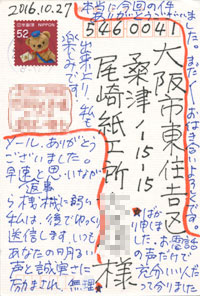 2016.10.27
52
546 0041
大阪市東住吉区
桑津1-15-15
尾崎紙工所
様
本当に今回の件
ありがとうございました。
出来上り!私も
楽しみです!
メール、ありがとう
ございました。
早速と思いながら
返事
私は、後でゆっくり
送信します。いつも
あなたの明るい
声と誠実さに
励まされ、無理
ばかり
申しました。お電話
の声だけで
充分いい人だ
って分かり